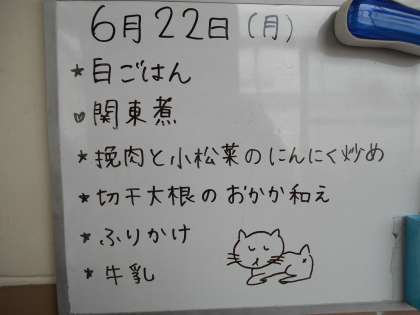 6月22日(月)
★白ごはん
♡関東煮
★挽肉と小松菜のにんにく炒め
★切干大根のおかか和え
★ふりかけ
★牛乳